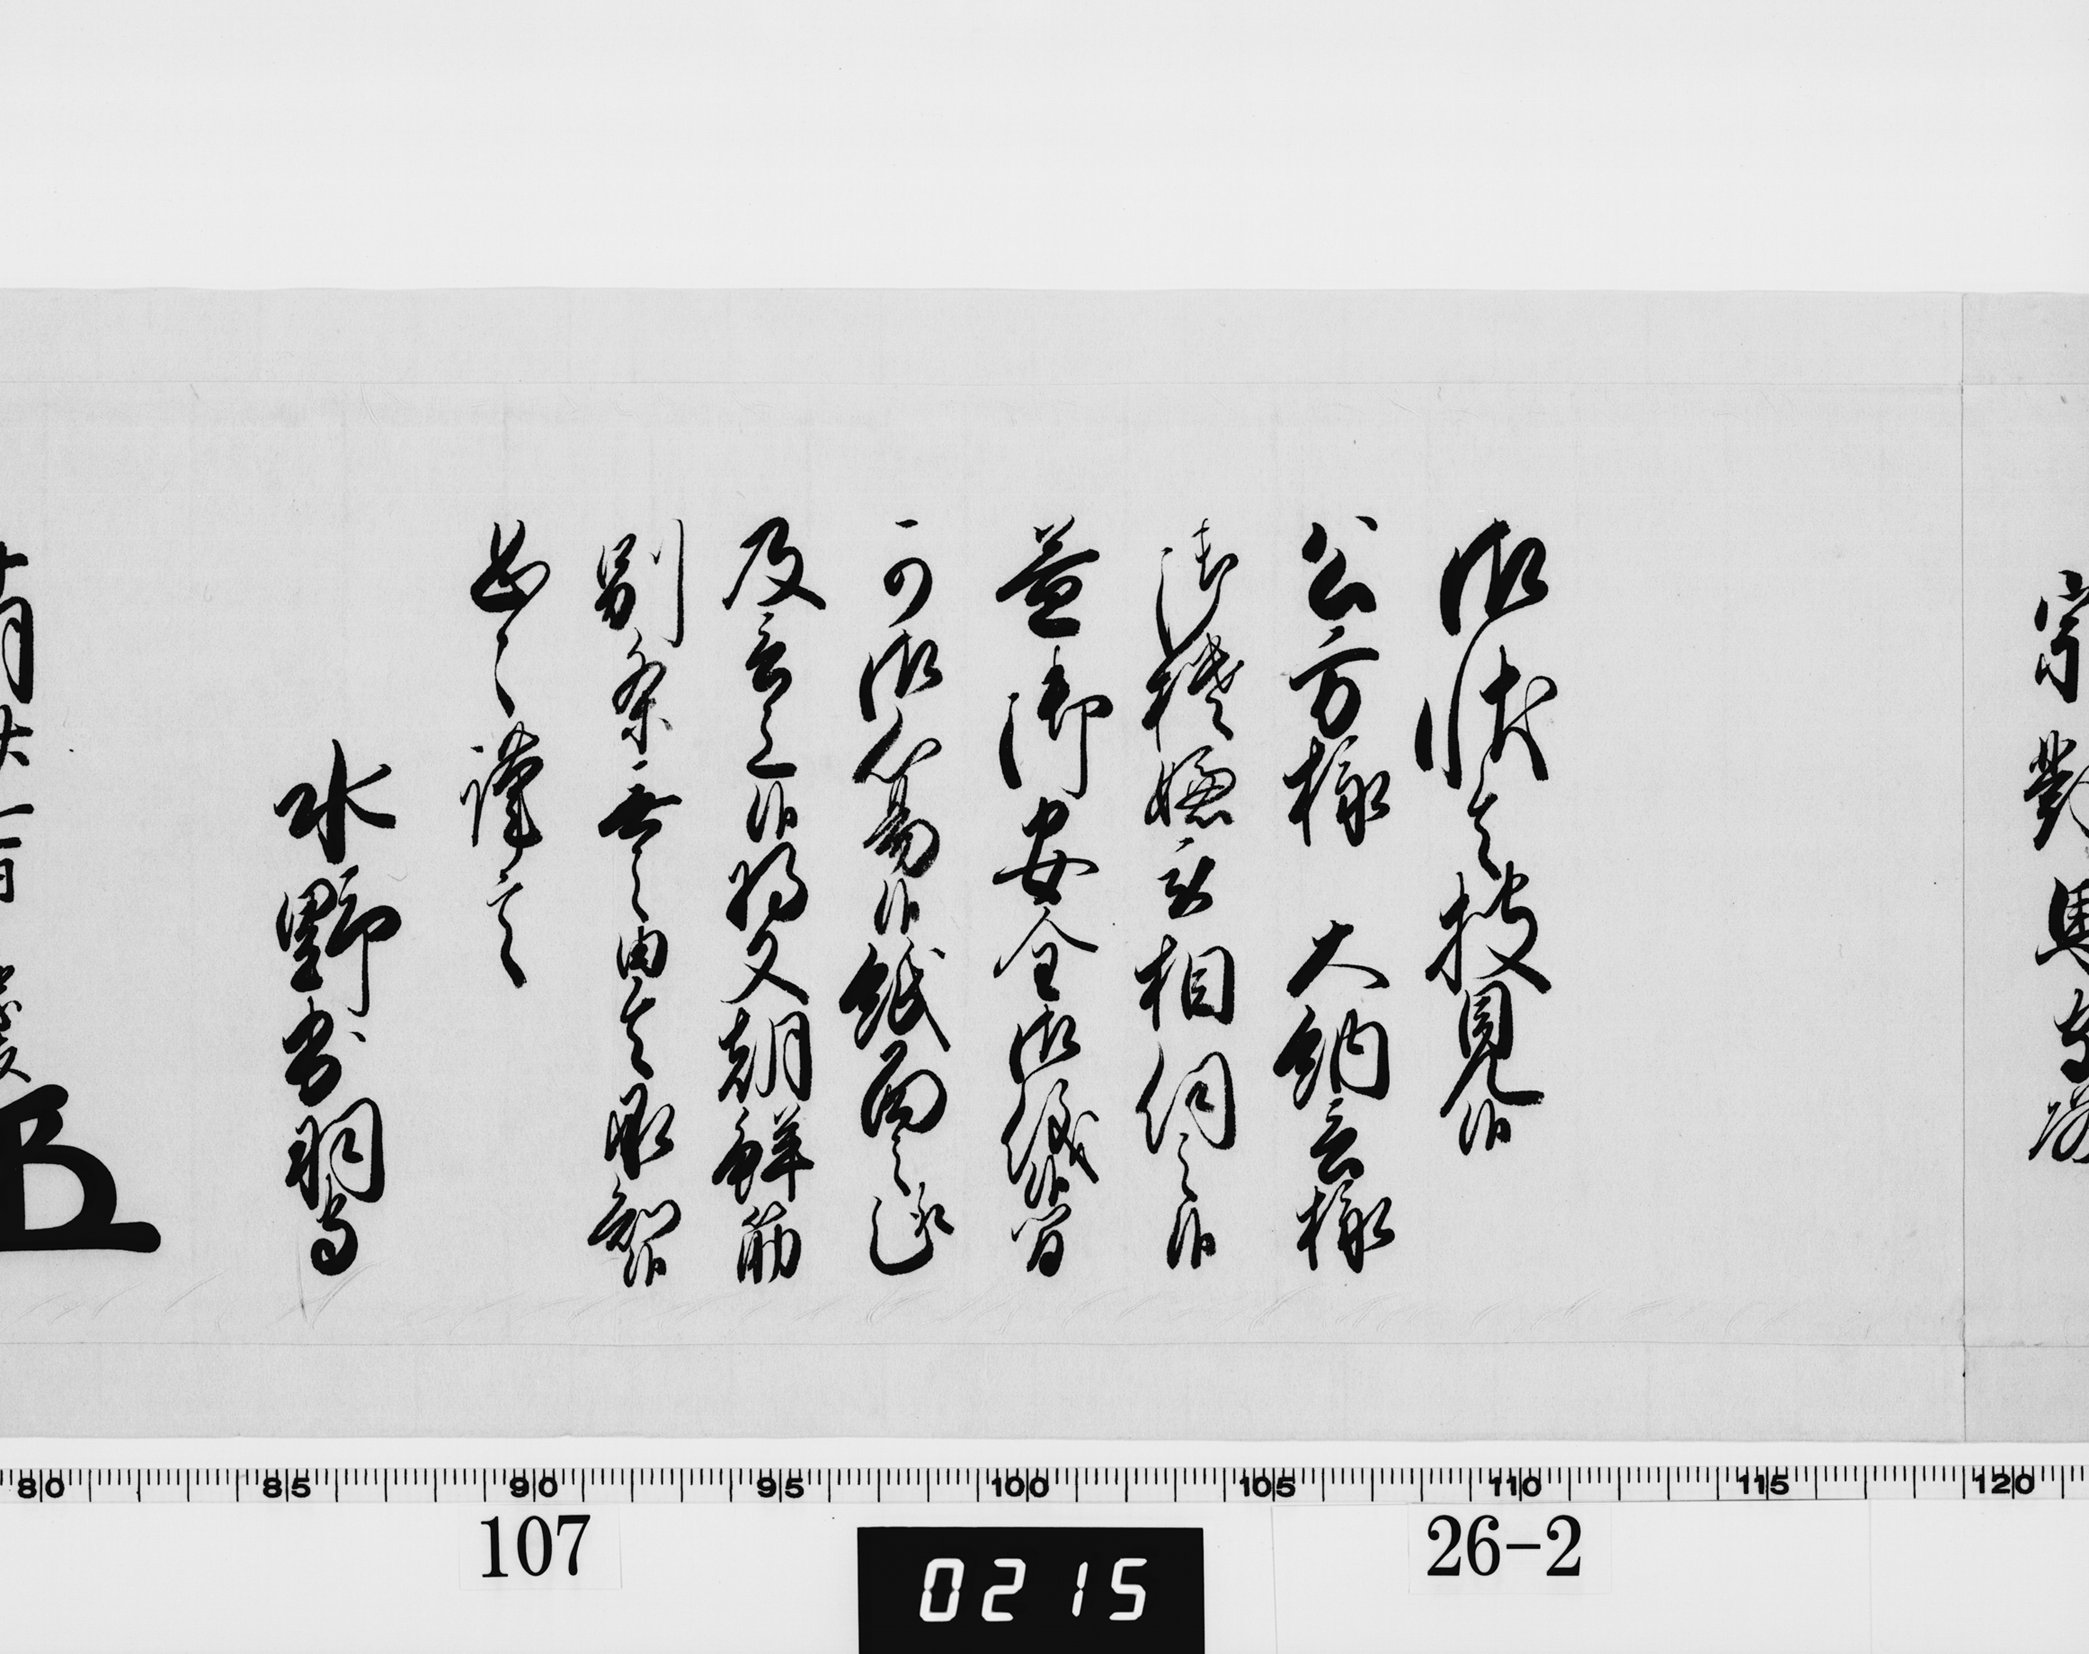 宗對馬守殿
御状令披見候
公方様 大納言様
御機嫌被相伺之候
益御安全御儀候間
可御心易候紙面之趣
及言上候将又朝鮮筋
別条無之由令承知候
恐々謹言
水野出羽守
80 85 90 95 100 105 110 115 120
107
0215
26-2